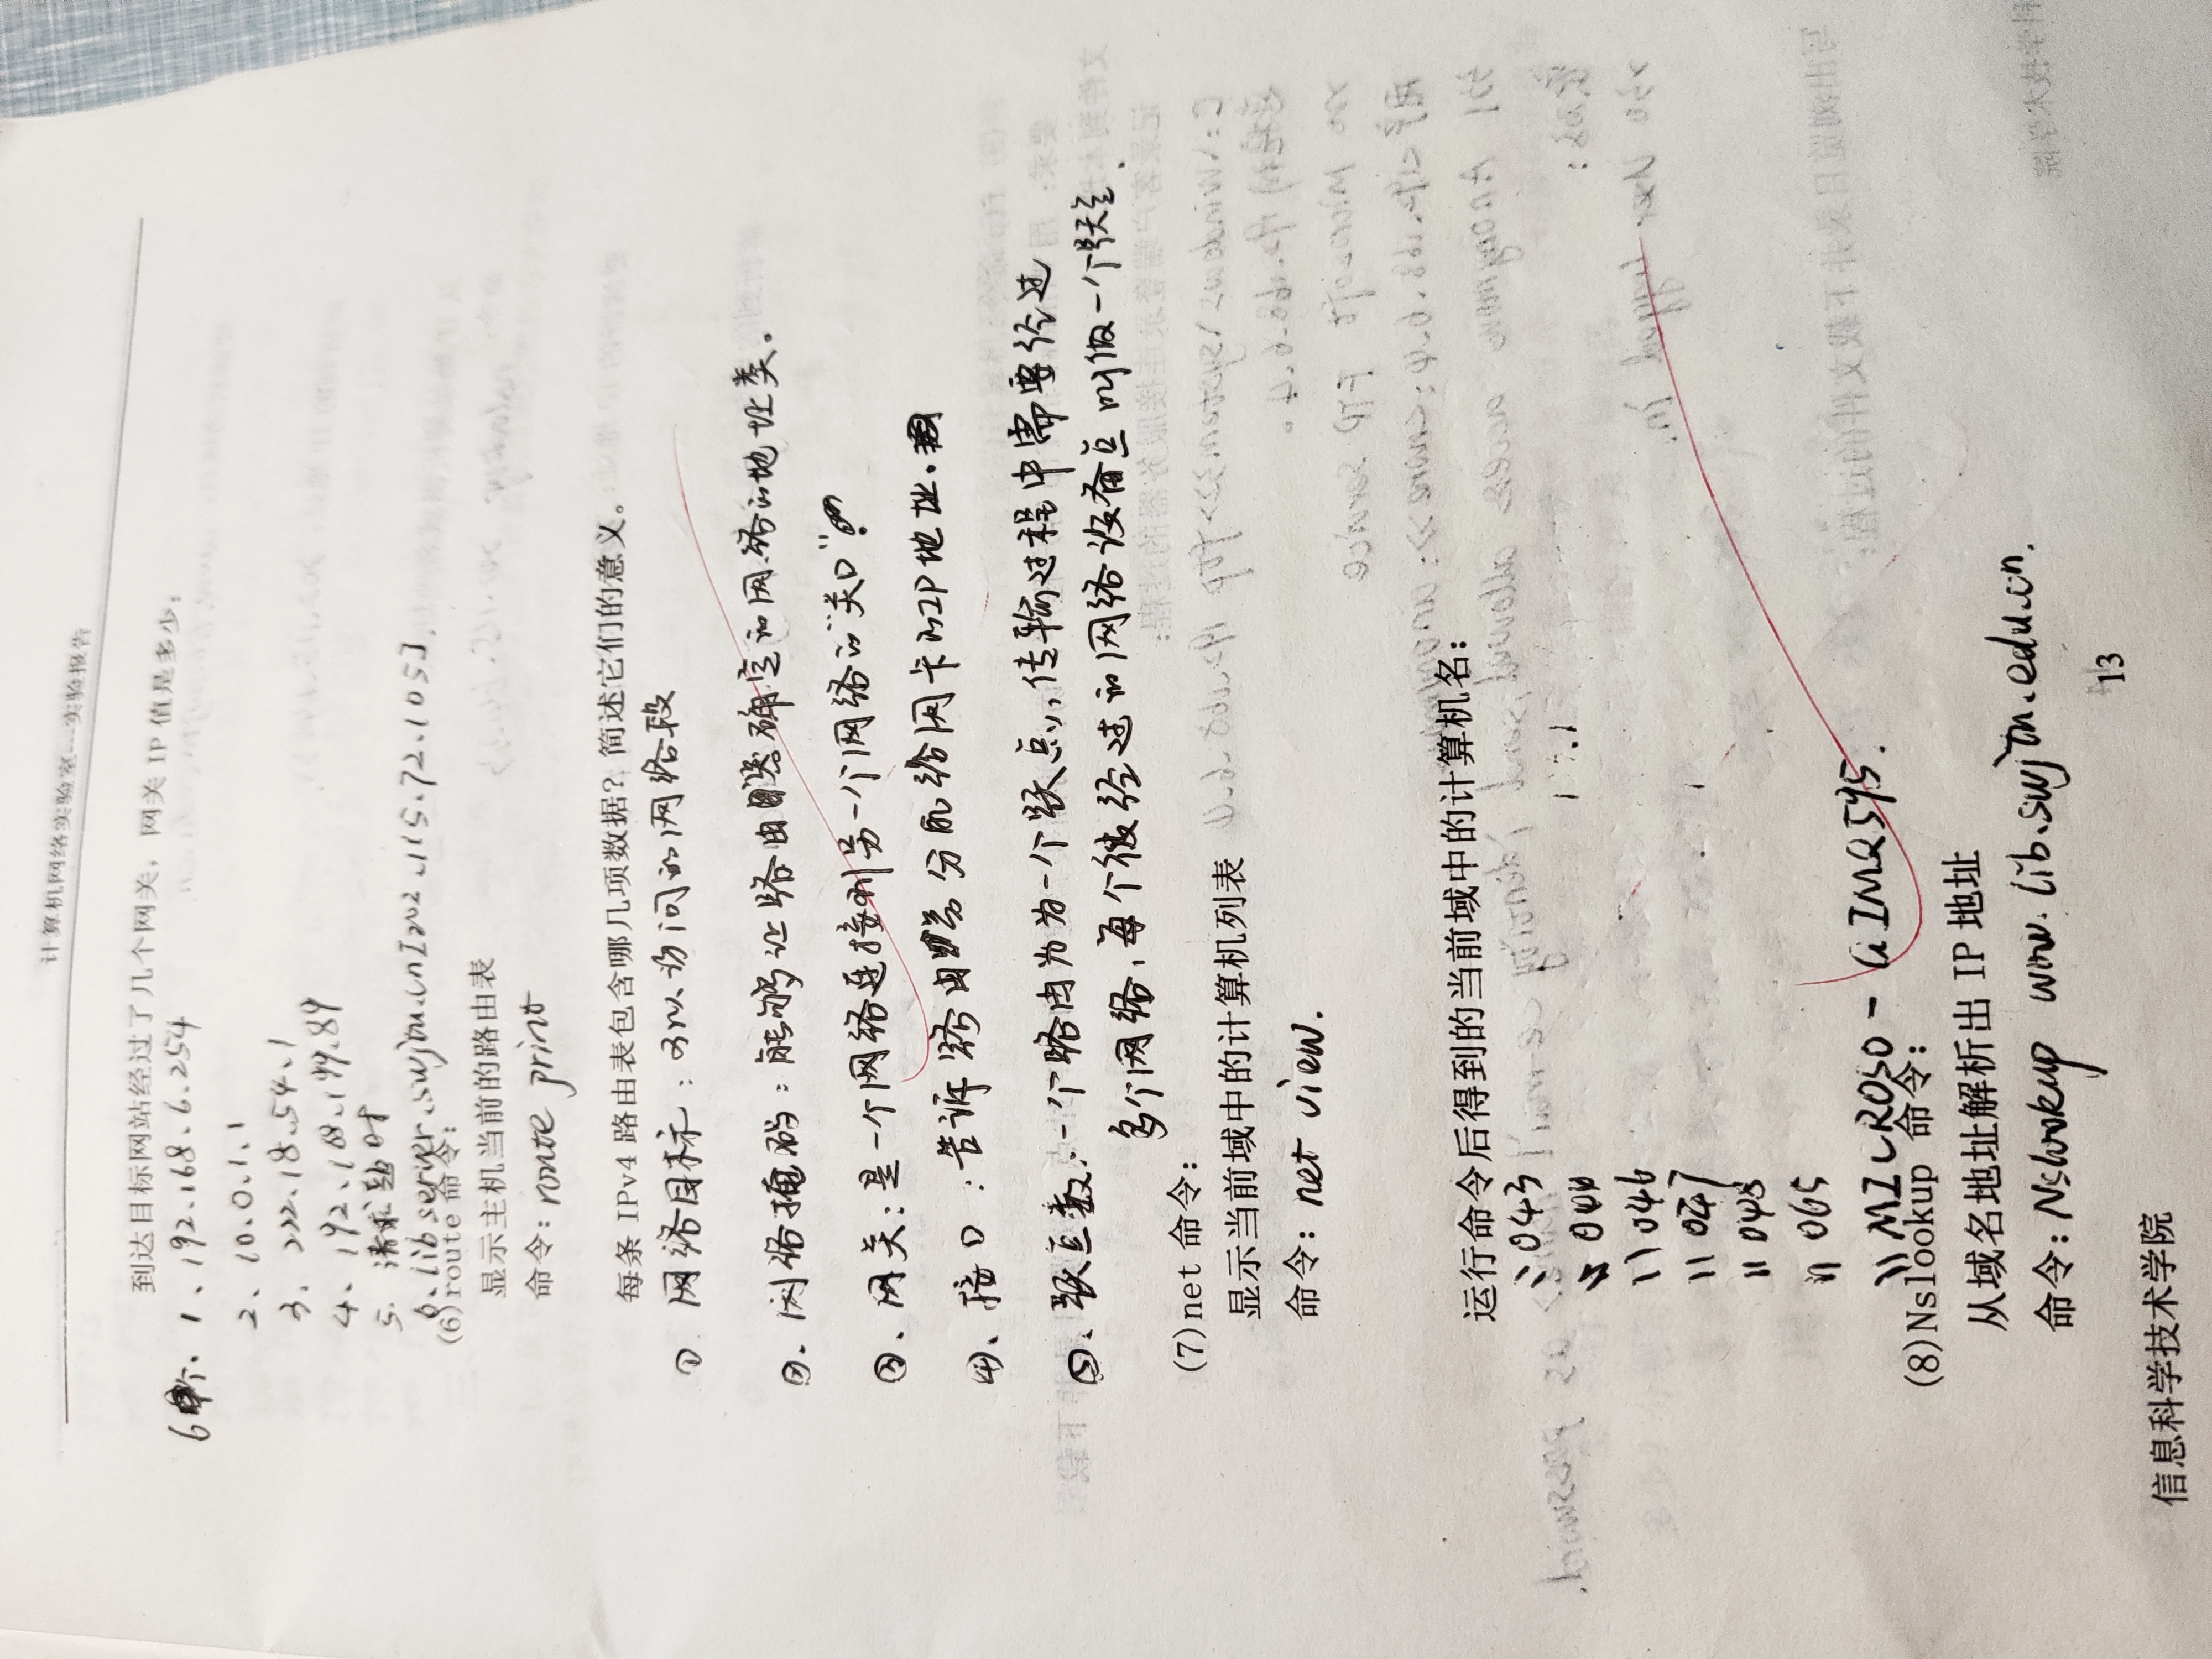 计算机网络实验室---实验报告
到达目标网站经过了几个网关，网关 IP 值是多少：
6个. 1、192.168.6.254
2、10.0.1.1
3. 222.18.54.1
4、192.168.199.89
5. 请求超时
6、libserver.swjtu.cn[202.115.72.105].
(6)route 命令：
显示主机当前的路由表
命令：route print
每条 IPv4 路由表包含哪几项数据？简述它们的意义。
① 网络目标：可以访问的网络段
②. 网络掩码：能够让路由器确定的网络的地址类。
③、网关：是一个网络连接到另一个网络的“关口”
④、接口：告诉路由器分配给网卡的IP地址.
⑤、跃点数：一个路由为为一个跃点，传输过程中需要经过
多个网络，每个被经过的网络设备点叫做一个跃点.
(7)net 命令：
显示当前域中的计算机列表
命令：net view.
运行命令后得到的当前域中的计算机名：
\\043
\\046
\\047
\\065
\\MICROSO-GIMQ595.
(8)Nslookup 命令：
从域名地址解析出 IP 地址
命令：Nslookup www.lib.swjtu.edu.cn.
13
信息科学技术学院